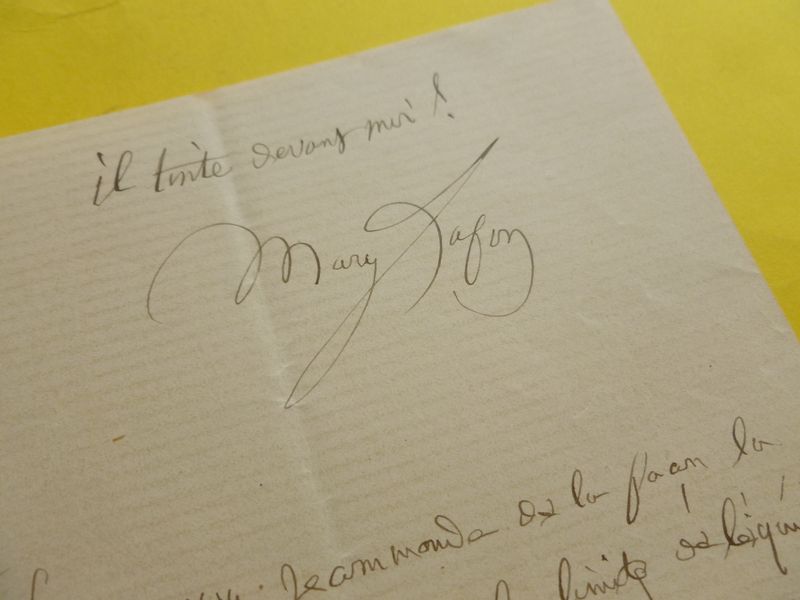 il tinte devant moi !
Mary Lafon
recommande de la façon la
la limite de l'équi